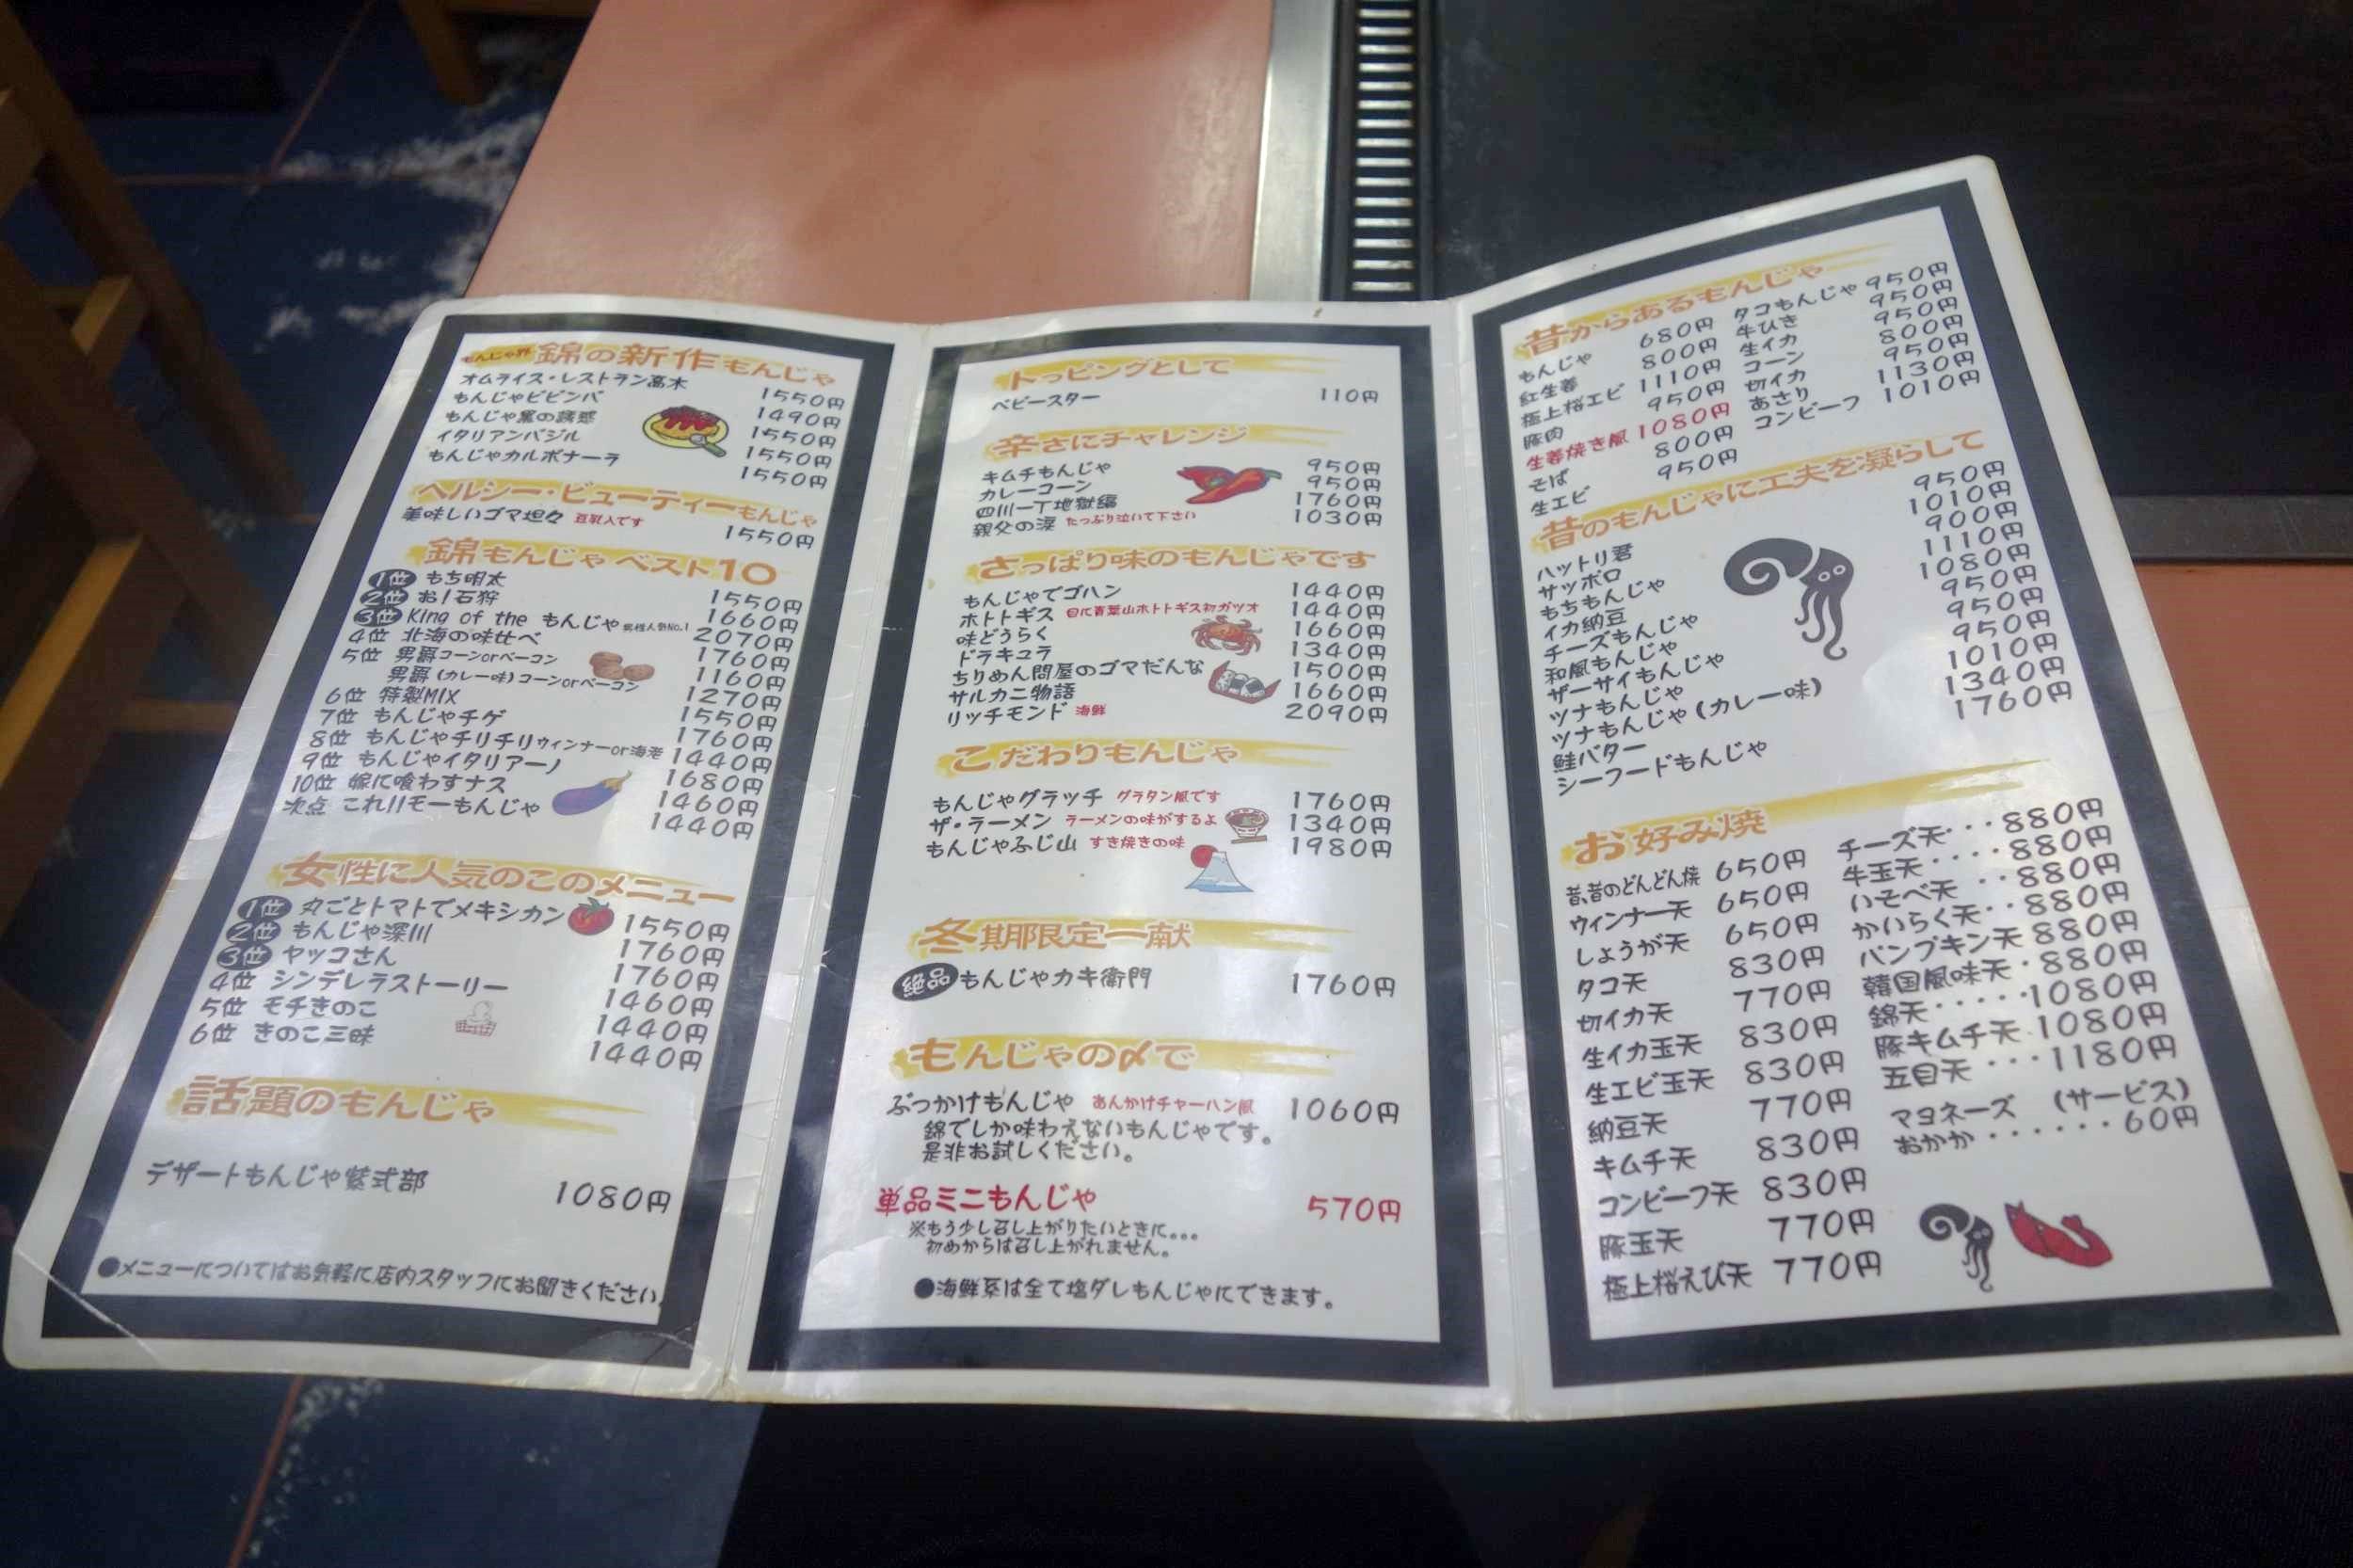 もんじゃ邦 錦の新作もんじゃ
オムライス・レストラン高木 1550円
もんじゃビビンバ 1490円
もんじゃ黒の誘惑 1550円
イタリアンバジル 1550円
もんじゃカルボナーラ 1550円
ヘルシー・ビューティーもんじゃ
美味しいゴマ坦々 豆乳入です 1550円
錦もんじゃベスト10
1位 もち明太 1550円
2位 お!石狩 1660円
3位 King of the もんじゃ 男性人気No.1 2070円
4位 北海の味比べ 1760円
5位 男爵コーンorベーコン 1160円
男爵(カレー味)コーンorベーコン 1270円
6位 特製MIX 1550円
7位 もんじゃチゲ 1760円
8位 もんじゃチリチリウィンナーor海老 1440円
9位 もんじゃイタリアーノ 1680円
10位 嫁に喰わすナス 1460円
次点 これ!!モーもんじゃ 1440円
女性に人気のこのメニュー
1位 丸ごとトマトでメキシカン 1550円
2位 もんじゃ深川 1760円
3位 ヤッコさん 1760円
4位 シンデレラストーリー 1460円
5位 モチきのこ 1440円
6位 きのこ三昧 1440円
話題のもんじゃ
デザートもんじゃ紫式部 1080円
●メニューについてはお気軽に店内スタッフにお聞きください。
トッピングとして
ベビースター 110円
辛さにチャレンジ
キムチもんじゃ 950円
カレーコーン 950円
四川一丁地獄編 1760円
親父の涙 たっぷり泣いて下さい 1030円
さっぱり味のもんじゃです
もんじゃでゴハン 1440円
ホトトギス 目に青葉山ホトトギス初ガツオ 1440円
味どうらく 1660円
ドラキュラ 1340円
ちりめん問屋のゴマだんな 1500円
サルカニ物語 1660円
リッチモンド 海鮮 2090円
こだわりもんじゃ
もんじゃグラッチ グラタン風です 1760円
ザ・ラーメン ラーメンの味がするよ 1340円
もんじゃふじ山 すき焼きの味 1980円
冬期限定一献
絶品 もんじゃカキ衛門 1760円
もんじゃの〆で
ぶつかけもんじゃ あんかけチャーハン風 1060円
錦でしか味わえないもんじゃです。
是非お試しください。
単品ミニもんじゃ 570円
※もう少し召し上がりたいときに。。。
初めからは召し上がれません。
●海鮮系は全て塩ダレもんじゃにできます。
昔からあるもんじゃ
もんじゃ 680円
紅生姜 800円
極上桜エビ 1110円
豚肉 950円
生姜焼き風 1080円
そば 800円
生エビ 950円
タコもんじゃ 950円
牛ひき 950円
生イカ 950円
コーン 800円
切イカ 950円
あさり 1130円
コンビーフ 1010円
昔のもんじゃに工夫を凝らして
ハットリ君 950円
サッポロ 1010円
もちもんじゃ 900円
イカ納豆 1110円
チーズもんじゃ 1080円
和風もんじゃ 950円
ザーサイもんじゃ 950円
ツナもんじゃ 950円
ツナもんじゃ(カレー味) 1010円
鮭バター 1340円
シーフードもんじゃ 1760円
お好み焼
昔、昔のどんどん焼 650円
ウィンナー天 650円
しょうが天 650円
タコ天 830円
切イカ天 770円
生イカ玉天 830円
生エビ玉天 830円
納豆天 770円
キムチ天 830円
コンビーフ天 830円
豚玉天 770円
極上桜えび天 770円
チーズ天・・・880円
牛玉天・・・・880円
いそべ天・・880円
かいらく天・・880円
パンプキン天 880円
韓国風味天・880円
錦天・・・・・1080円
豚キムチ天・1080円
五目天・・・1180円
マヨネーズ (サービス)
おかか・・・・・・60円